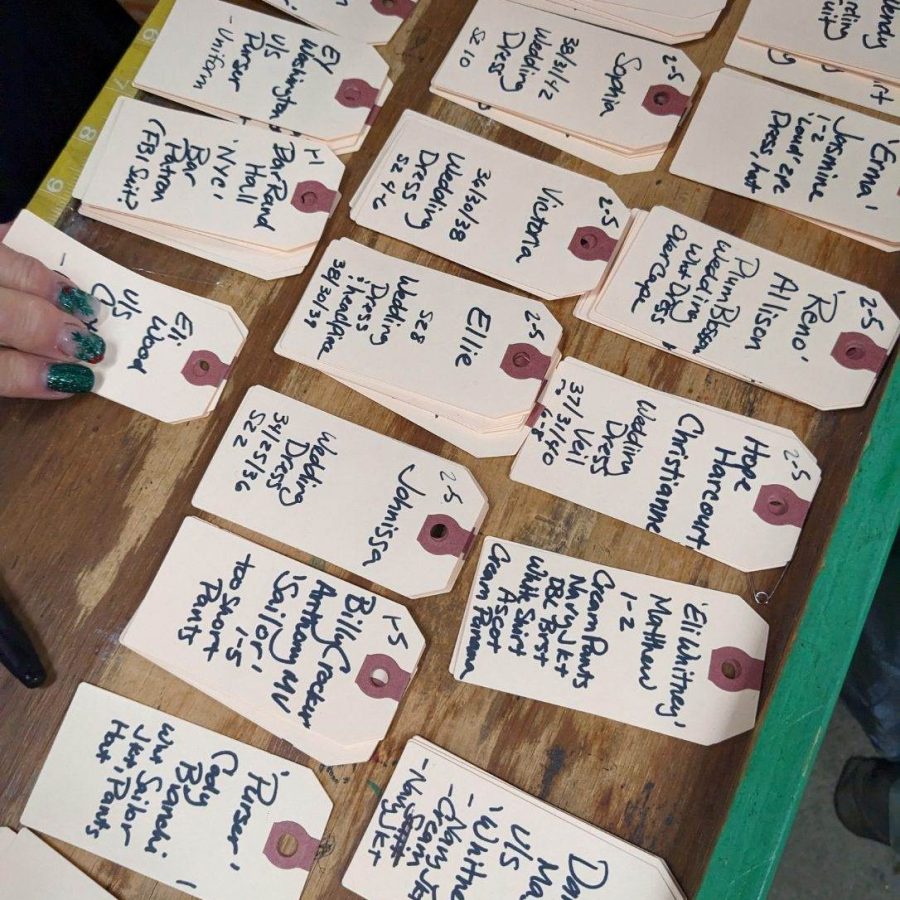 6
7
8
9
Ev
Washington
U/S
Purser
- Uniform
2-5
Sophia
38/31/42
Wedding
Dress
SZ 10
'Erma'
Jasmine
1-2
Dress/hat
1-1
Hall
'NYC'
Bar
Patron
(FBI Suit?)
2-5
Victoria
36/30/38
Wedding
Dress
SZ 4-6
2-5
'Reno'
Allison
Plum Blossom
Wedding
Wht Dress
Over Cape
Eli
Wood
U/S
2-5
Ellie
SZ 8
Wedding
Dress
38/30/39
2-5
Hope
Harcourt
Christianne
Wedding
Dress
Veil
37/31/40
6-8
2-5
Johnissa
Wedding
Dress
34/25/36
SZ 2
1-5
Billy Crocker
Anthony MV
'Sailor'
1-5
too short
Pants
'Eli Whitney'
Matthew
1-2
Cream Pants
Navy Jkt
DBL Brst
White Shirt
Ascot
Cream Panama
'Purser'
Cody
Bianchi
Wht Sailor
Jkt, Pants
Hat
U/S
- Cream
- Navy Jkt